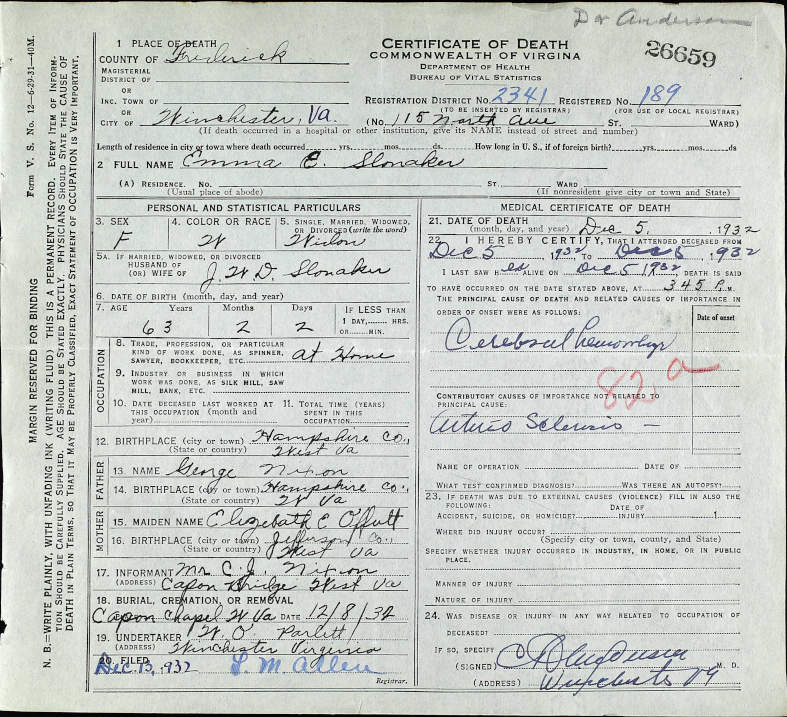 Dr Anderson
26659
1 PLACE OF DEATH
COUNTY OF Frederick
MAGISTERIAL DISTRICT OF
OR
INC. TOWN OF
OR
CITY OF Winchester, Va.
CERTIFICATE OF DEATH
COMMONWEALTH OF VIRGINA
DEPARTMENT OF HEALTH
BUREAU OF VITAL STATISTICS
REGISTRATION DISTRICT NO. 2341 REGISTERED NO. 189
(TO BE INSERTED BY REGISTRAR) (FOR USE OF LOCAL REGISTRAR)
(No. 115 North Ave ST. WARD)
(If death occurred in a hospital or other institution, give its NAME instead of street and number)
Length of residence in city or town where death occurred? yrs. mos. ds. How long in U. S., if of foreign birth? yrs. mos. ds
2 FULL NAME Emma E. Slonaker
(A) RESIDENCE. No. ST. WARD
(Usual place of abode) (If nonresident give city or town and State)
PERSONAL AND STATISTICAL PARTICULARS
3. SEX
F
4. COLOR OR RACE
W
5. SINGLE, MARRIED, WIDOWED, OR DIVORCED (write the word)
Widow
5A. IF MARRIED, WIDOWED, OR DIVORCED
HUSBAND OF
(OR) WIFE OF J. W. D. Slonaker
6. DATE OF BIRTH (month, day, and year)
7. AGE Years Months Days IF LESS THAN
1 DAY, HRS.
OR MIN.
63 2 2
OCCUPATION
8. TRADE, PROFESSION, OR PARTICULAR
KIND OF WORK DONE, AS SPINNER,
SAWYER, BOOKKEEPER, ETC. at Home
9. INDUSTRY OR BUSINESS IN WHICH
WORK WAS DONE, AS SILK MILL, SAW
MILL, BANK, ETC.
10. DATE DECEASED LAST WORKED AT THIS OCCUPATION (month and year)
11. TOTAL TIME (YEARS) SPENT IN THIS OCCUPATION
12. BIRTHPLACE (city or town) Hampshire Co.,
(State or country) West Va
FATHER
13. NAME George Nixon
14. BIRTHPLACE (city or town) Hampshire Co.,
(State or country) W Va
MOTHER
15. MAIDEN NAME Elizebath E Offutt
16. BIRTHPLACE (city or town) Jefferson Co.,
(State or country) West Va
17. INFORMANT Mr C. J. Nixon
(ADDRESS) Capon Bridge West Va
18. BURIAL, CREMATION, OR REMOVAL
Capon Chapel W Va DATE 12/8/32
19. UNDERTAKER W. O. Parlett
(ADDRESS) Winchester Virginia
20. FILED
Dec. 13, 1932 L. M. Allen
Registrar.
MEDICAL CERTIFICATE OF DEATH
21. DATE OF DEATH
(month, day, and year) Dec 5. 1932
22. I HEREBY CERTIFY, THAT I ATTENDED DECEASED FROM
Dec 5, 1932 TO Dec 5, 1932
I LAST SAW her ALIVE ON Dec 5 1932, DEATH IS SAID
TO HAVE OCCURRED ON THE DATE STATED ABOVE, AT 3 45 P. M.
THE PRINCIPAL CAUSE OF DEATH AND RELATED CAUSES OF IMPORTANCE IN
ORDER OF ONSET WERE AS FOLLOWS:
Date of onset
Cerebral hemorrhage
82 a
CONTRIBUTORY CAUSES OF IMPORTANCE NOT RELATED TO
PRINCIPAL CAUSE:
Arterio Sclerosis
NAME OF OPERATION DATE OF
WHAT TEST CONFIRMED DIAGNOSIS? WAS THERE AN AUTOPSY?
23. IF DEATH WAS DUE TO EXTERNAL CAUSES (VIOLENCE) FILL IN ALSO THE
FOLLOWING:
ACCIDENT, SUICIDE, OR HOMICIDE? DATE OF INJURY 1
WHERE DID INJURY OCCUR?
(Specify city or town, county, and State)
SPECIFY WHETHER INJURY OCCURRED IN INDUSTRY, IN HOME, OR IN PUBLIC
PLACE.
MANNER OF INJURY
NATURE OF INJURY
24. WAS DISEASE OR INJURY IN ANY WAY RELATED TO OCCUPATION OF
DECEASED?
IF SO, SPECIFY
(SIGNED) Anderson M. D.
(ADDRESS) Winchester Va
Form V. S. No. 12—6-29-31—40M.
MARGIN RESERVED FOR BINDING
N. B.—WRITE PLAINLY, WITH UNFADING INK (WRITING FLUID) THIS IS A PERMANENT RECORD. EVERY ITEM OF INFORM-
TION SHOULD BE CAREFULLY SUPPLIED. AGE SHOULD BE STATED EXACTLY. PHYSICIANS SHOULD STATE THE CAUSE OF
DEATH IN PLAIN TERMS, SO THAT IT MAY BE PROPERLY CLASSIFIED, EXACT STATEMENT OF OCCUPATION IS VERY IMPORTANT.